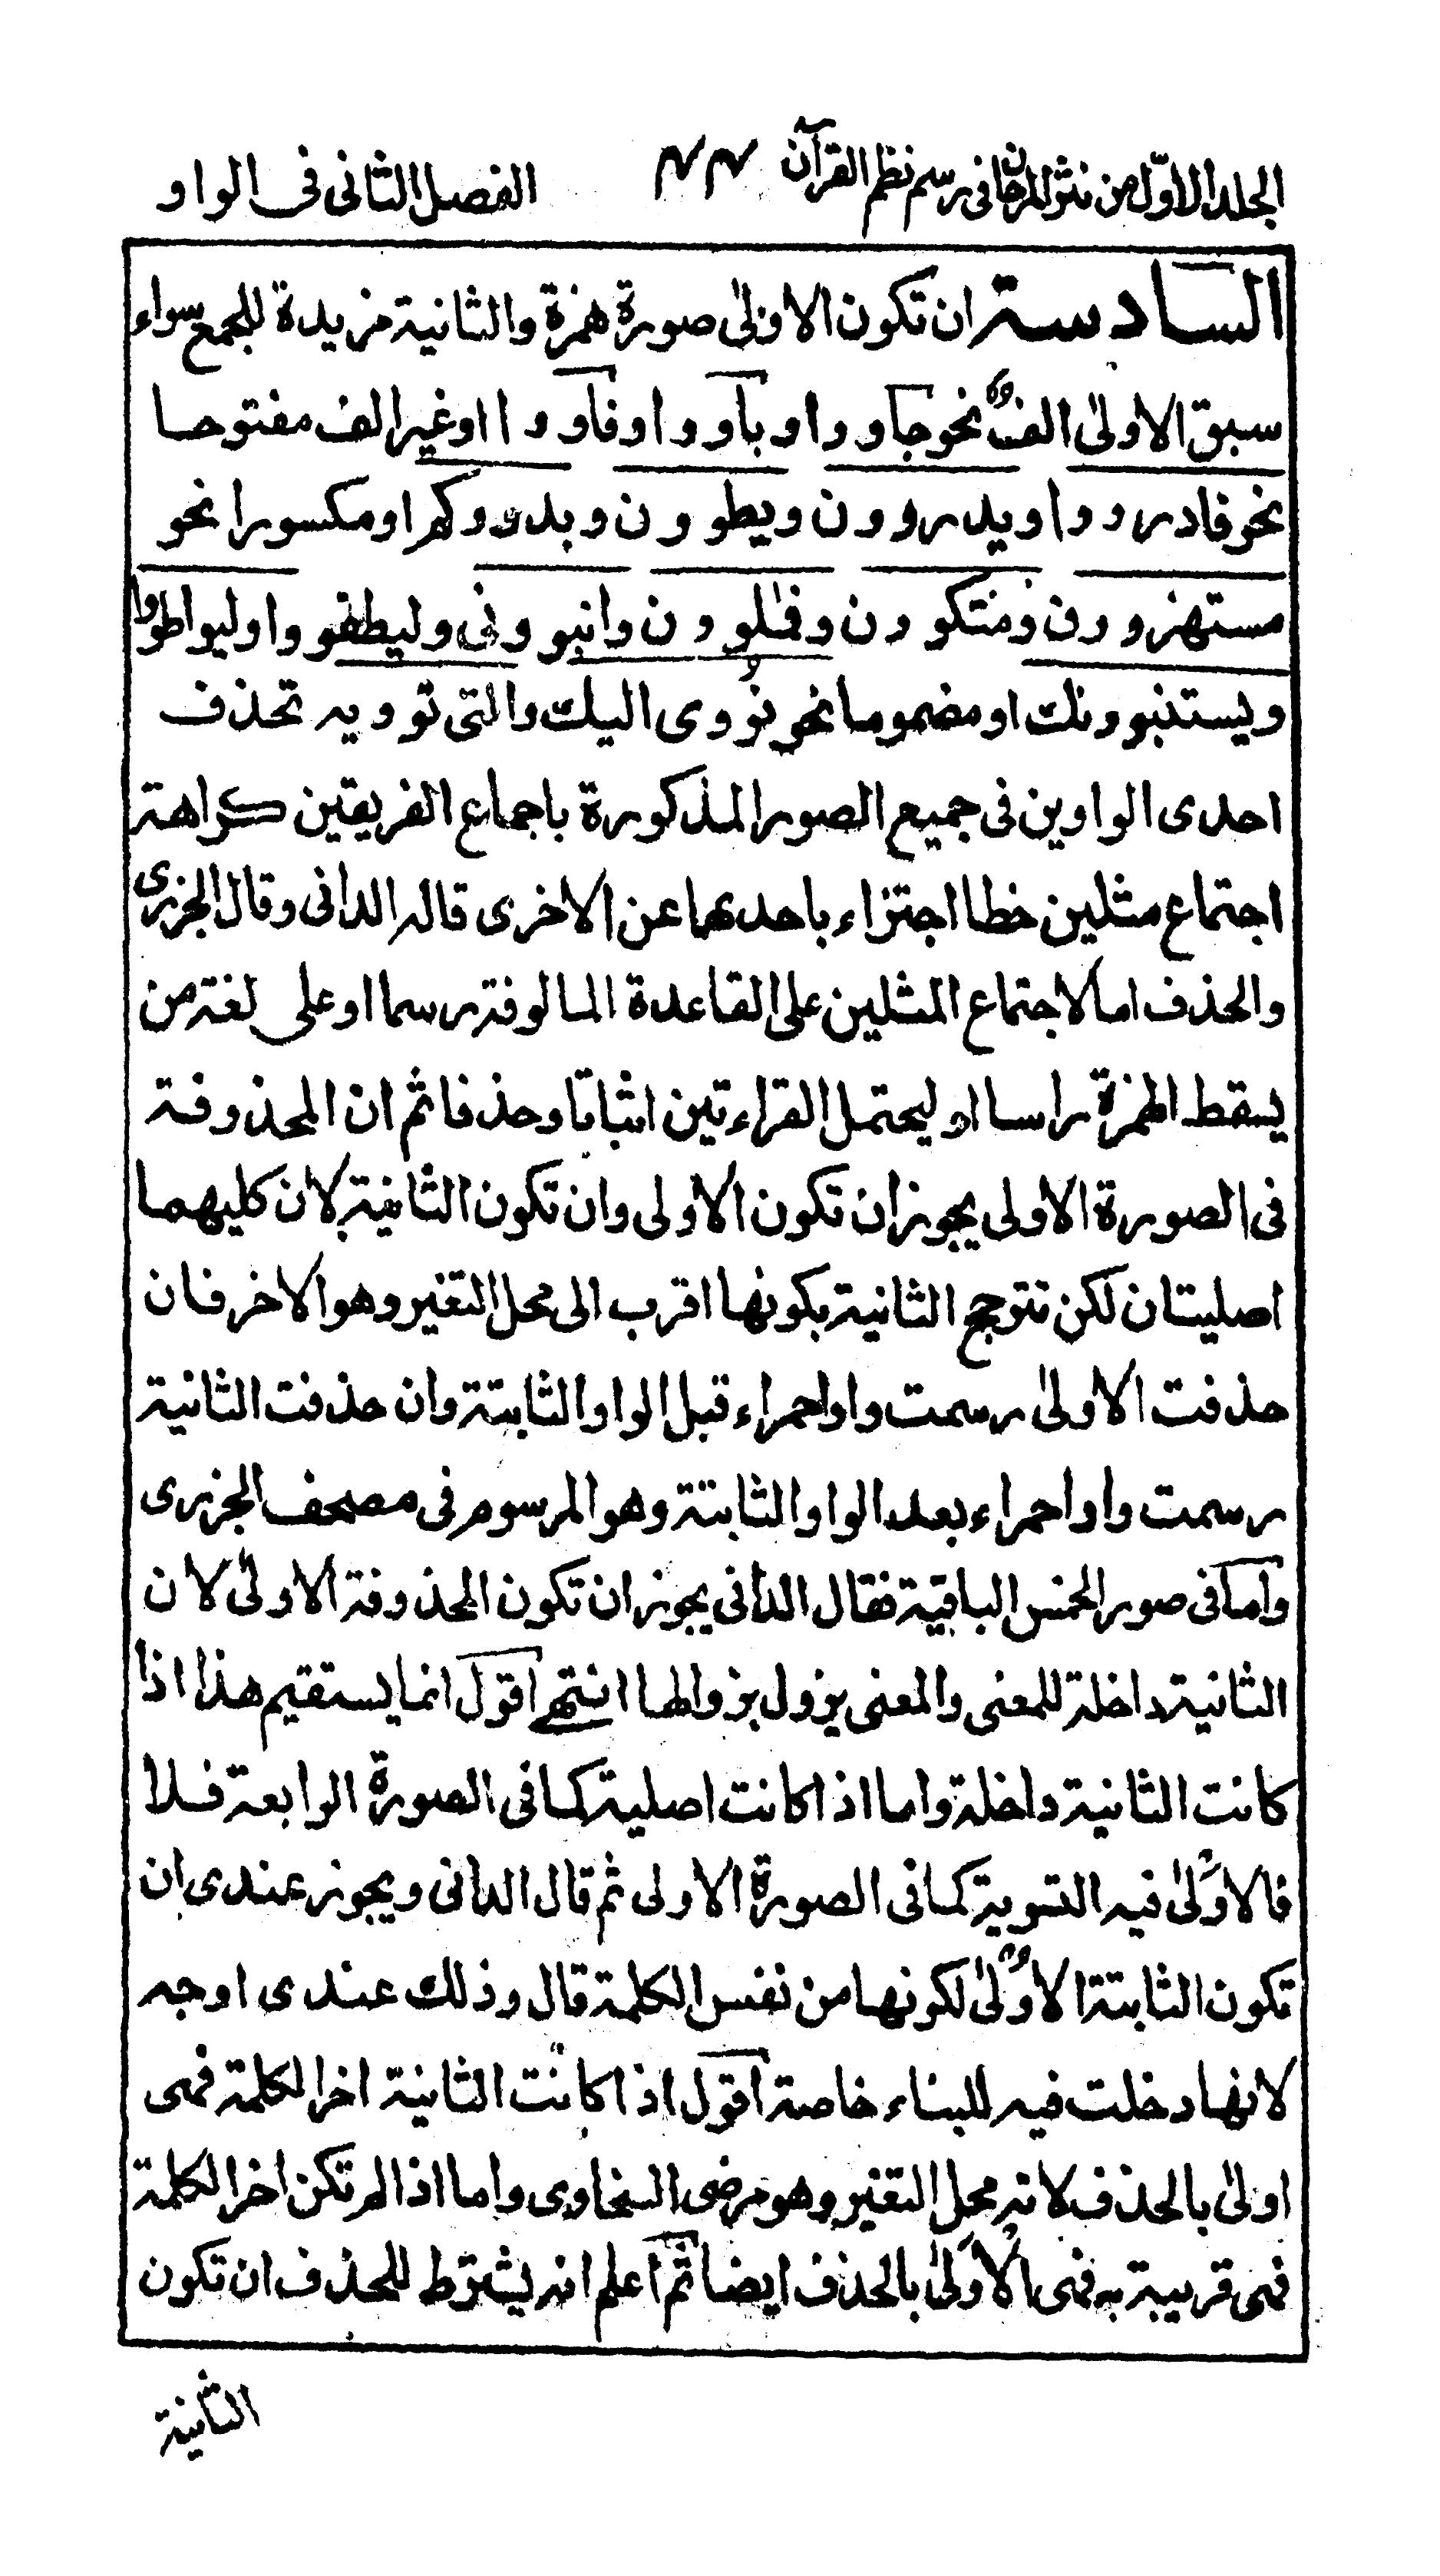 الجلد الاوّل من نثر المرجان فى رسم نظم القرآن ٧٧ الفصل الثانى فى الواو
السادسة ان تكون الاولىٰ صورة همزة والثانية مزيدة للجمع سواء
سبق الاولىٰ الف نحو جاووا وباووا وفاووا او غير الف مفتوحا
نحو فادرووا ويدروون ويطوون وبدووكم او مكسورا نحو
مستهزوون ومتكوون وفمٰلوون وانبوونى وليطفووا وليواطووا
ويستنبوونك او مضموما نحو نؤوى اليك والتى توويه تحذف
احدى الواوين فى جميع الصور المذكورة باجماع الفريقين كراهة
اجتماع مثلين خطا اجتزاء باحدىهما عن الاخرى قاله الدانى وقال الجزرى
والحذف اما لاجتماع المثلين على القاعدة المالوفة رسما او على لغة من
يسقط الهمزة راسا او ليحتمل القراءتين اثباتا وحذفا ثم ان المحذوفة
فى الصورة الاولى يجوز ان تكون الاولى وان تكون الثانية لان كليهما
اصليتان لكن تترجح الثانية بكونها اقرب الى محل التغير وهو الاخر فان
حذفت الاولىٰ رسمت واوا حمراء قبل الواو الثابتة وان حذفت الثانية
رسمت واوا حمراء بعد الواو الثابتة وهو المرسوم فى مصحف الجزرى
واما فى صور الخمس الباقية فقال الدانى يجوز ان تكون المحذوفة الاولىٰ لان
الثانية داخلة للمعنى والمعنى يزول بزوالها انتهى اقول انما يستقيم هذا اذا
كانت الثانية داخلة واما اذا كانت اصلية كما فى الصورة الرابعة فلا
فالاَوْلىٰ فيه التسوية كما فى الصورة الاولى ثم قال الدانى ويجوز عندى ان
تكون الثابتة الاُوْلىٰ لكونها من نفس الكلمة قال وذلك عندى اوجه
لانها دخلت فيه للبناء خاصة اقول اذا كانت الثانية اخر الكلمة فهى
اولىٰ بالحذف لانه محل التغير وهو مرضى السخاوى واما اذا لم تكن اخر الكلمة
فهى قريبة به فهى الاَولىٰ بالحذف ايضا ثم اعلم انه يشترط للحذف ان تكون
الثانية